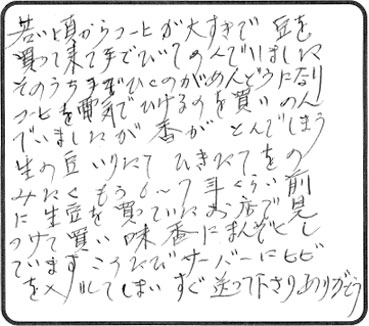 若い頃からコーヒが大すきで 豆を
買って来て手でひいてのんでいました
そのうち手でひくのがめんどうになり
コーヒを電気でひけるのを買い のん
でいましたが 香が とんでしまう
生の豆 いりたて ひきたてをの
みたく もう6〜7年くらい前
に生豆を買っていたお店で見
つけて買い 味香にまんぞくし
ています こうたびサーバーにヒビ
を入れてしまい すぐ送って下さりありがとう